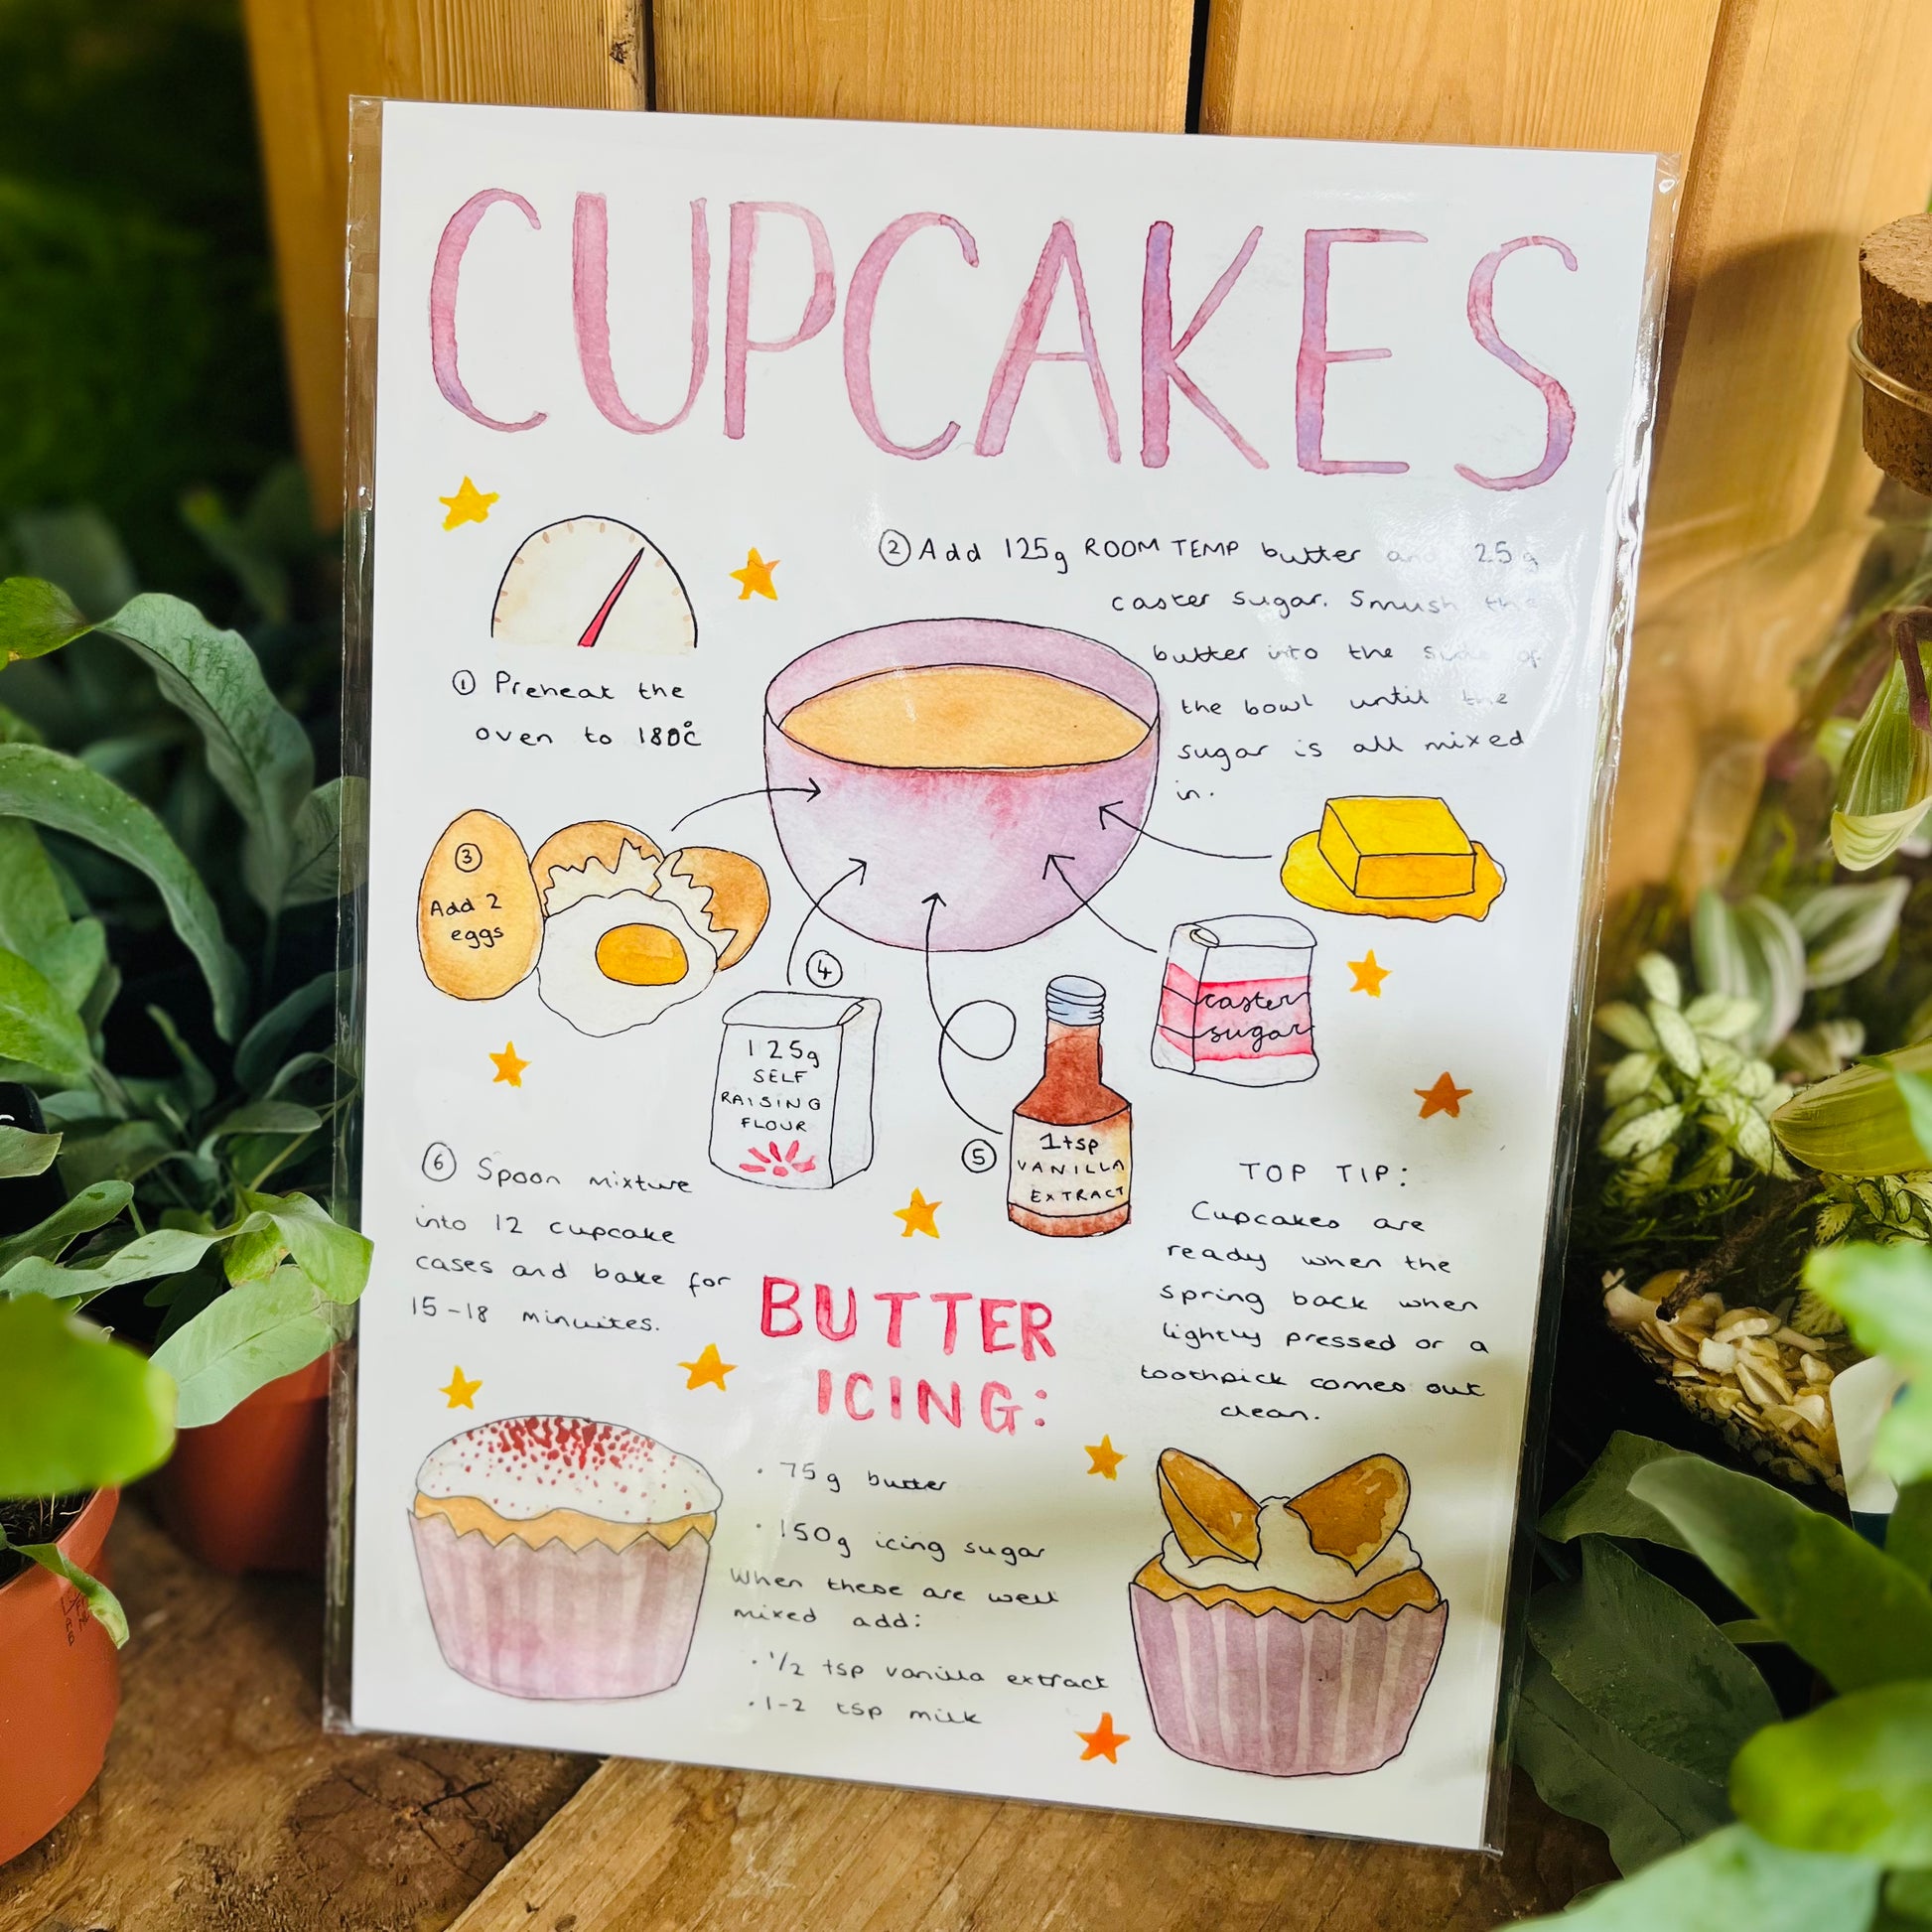 CUPCAKES
① Preheat the
oven to 180°C
② Add 125g ROOM TEMP butter and 25g
caster sugar. Smush the
butter into the side of
the bowl until the
sugar is all mixed
in.
③
Add 2
eggs
④
125g
SELF
RAISING
FLOUR
⑤
1tsp
VANILLA
EXTRACT
caster
sugar
⑥ Spoon mixture
into 12 cupcake
cases and bake for
15-18 minuites.
TOP TIP:
Cupcakes are
ready when the
spring back when
lightly pressed or a
toothpick comes out
clean.
BUTTER
ICING:
· 75g butter
· 150g icing sugar
When these are well
mixed add:
· 1/2 tsp vanilla extract
· 1-2 tsp milk